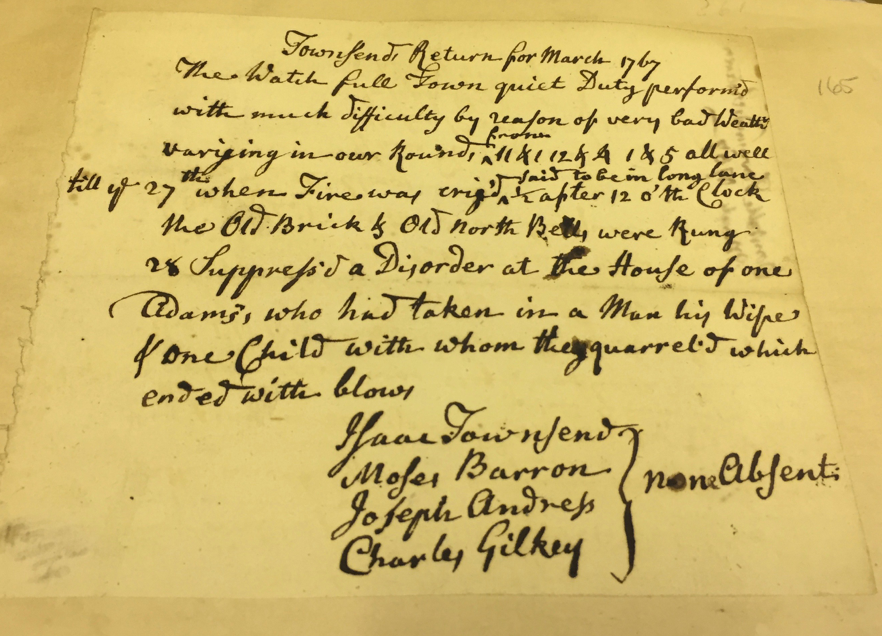 Townsends Return for March 1767
The Watch full Town quiet Duty performd
with much difficulty by reason of very bad Weathr
variging in our Rounds from 11 & 1 12 & 4 1 & 5 all well
till ye 27th when Fire was crig'd said to be in long lane ½ after 12 o'th Clock
the Old Brick & Old North Bells were Rung
28 Suppress'd a Disorder at the House of one
Adams's, who had taken in a Man his Wife
& one Child with whom they quarrel'd which
ended with blows
Isaac Townsend
Moses Barron
Joseph Andress
Charles Gilkey
none Absent
165